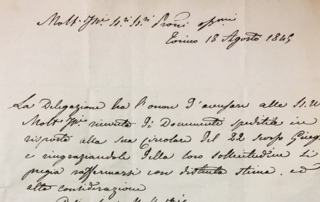 Molt. Ill.i S.ri S.ri Proni
Torino 18 Agosto 1845
La Delegazione ha l'onore d'accusare alle
Molt. Ill.i ricevuta di Documenti speditile in
risposta alla sua Circolare del 22 scorso Giugno
e ringraziandole della loro sollecitudine si
pregia raffermarsi con distinta stima, ed
alta considerazione